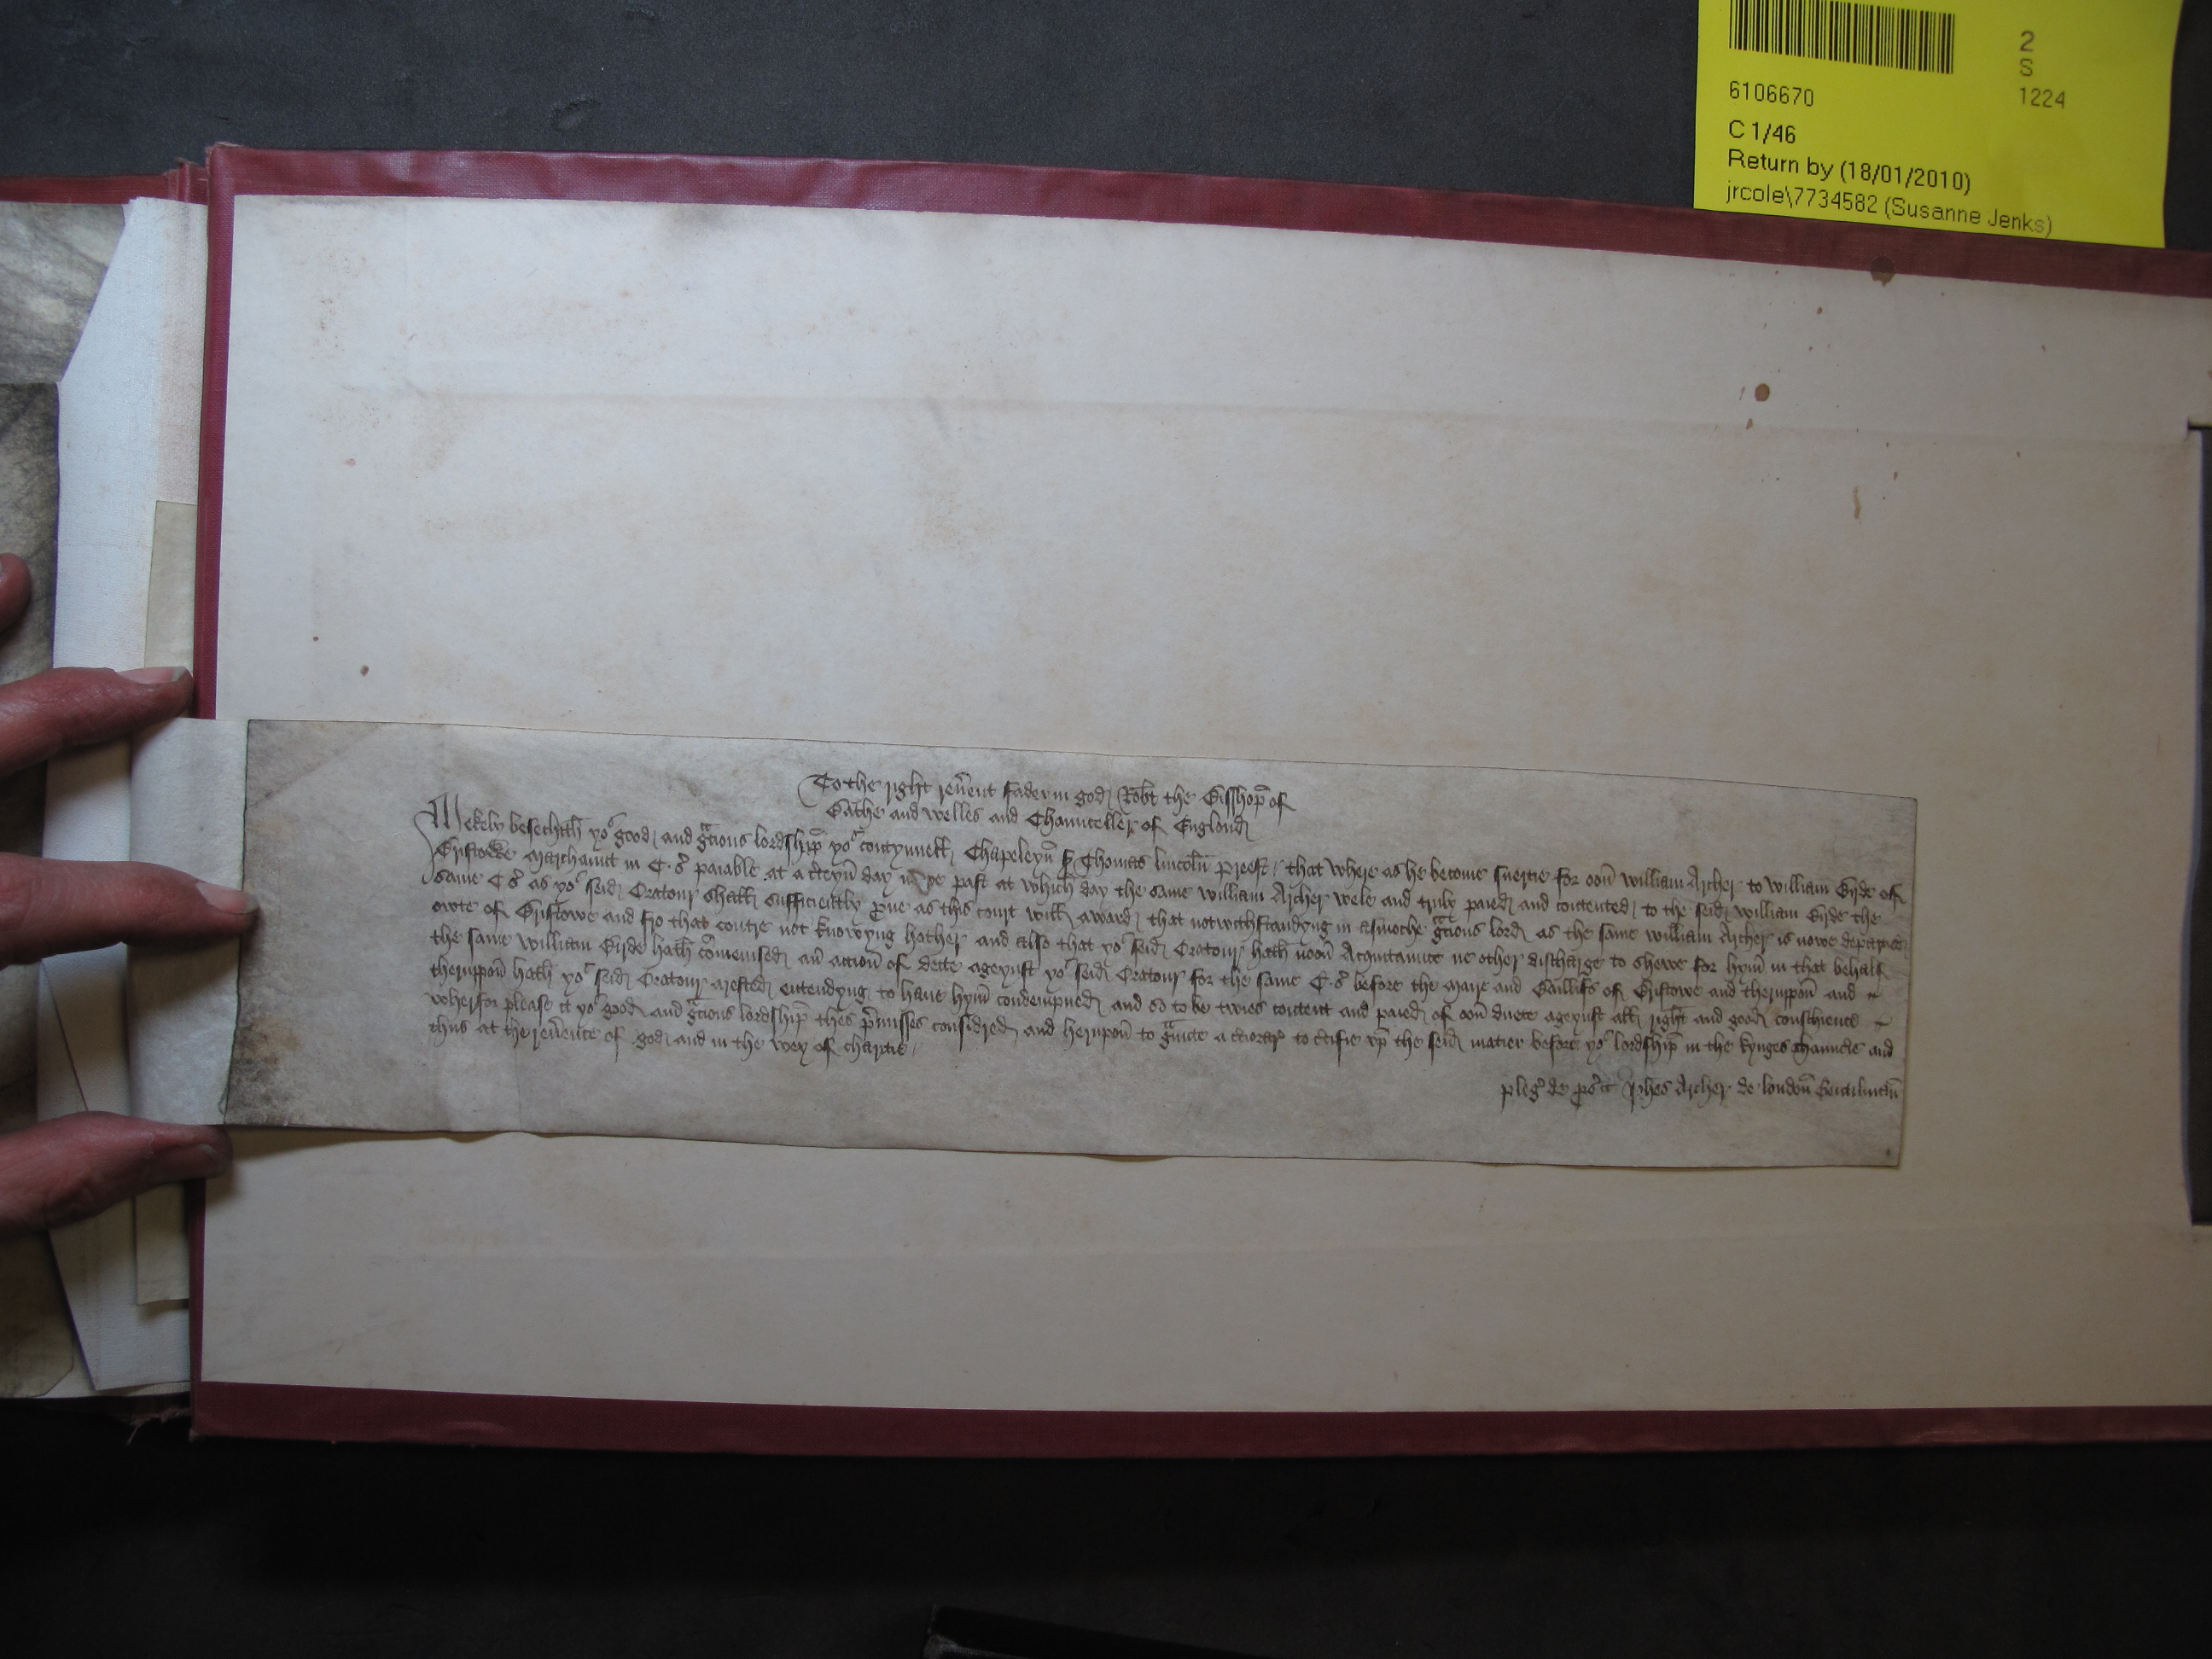 2
S
6106670
1224
C 1/46
Return by (18/01/2010)
jrcole\7734582 (Susanne Jenks)
To the right reu̅ent fader in god Rob̅t the Bisshop̅ of
Bathe and Welles and Chaunceller of Englond
Mekely besechith yoʳ good and gͣcious lordship̅ yoʳ contynuell Chapeleyn̅ Sʳ Thomas lincoln̅ preest / that where as he become suertie for oon̅ William Archer to William Birde of
Bristowe marchaunt in C . s̉ paiable at a c̅teyn̅ day nowe past at which day the same William Archer wele and truly paied and contented to the seid William Birde the
same C s̉ as yoʳ seid Oratour shall sufficiently ꝓue as this court will award / that notwithstandyng in asmoche gͣcious lord as the same William Archer is nowe departed
owte of Bristowe and fro that contre not knowyng whother and also that yoʳ seid Oratour hath noon̅ Acquitaunce ne other discharge to shewe for hym̅ in that behalf
the same William Birde hath com̅ensed an̅ accion̅ of dette ageynst yoʳ seid Oratour for the same C . s̉ before the Maire and Baillifs of Bristowe and theruppon̅ and
theruppon̅ hath yoʳ seid Oratour arested entendyng to haue hym̅ condempned and so to be twies content and paied of oon̅ duete ageynst all right and good conscience
Wherfor please it yoʳ good and gͣcious lordship̅ thes p̅misses considred and heruppon̅ to gͣunte a cc̅iorarͥ to c̅tifie vp̅ the seid matier before yoʳ lordship̅ in the kynges Chauncie and
thus at the reu̅ence of god and in the wey of charitie /
pleg̉ de ꝓs̉ Joh̅es Archer de london̅ Gentilman̅